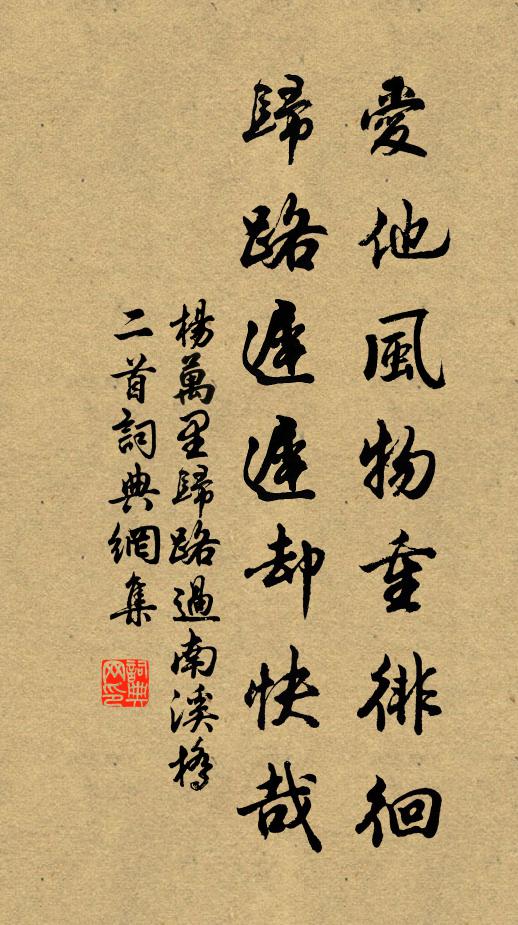 愛他風物重徘徊
歸路遲遲却快哉
楊萬里歸路過南溪橋
二首詞典網集
詞典
网印